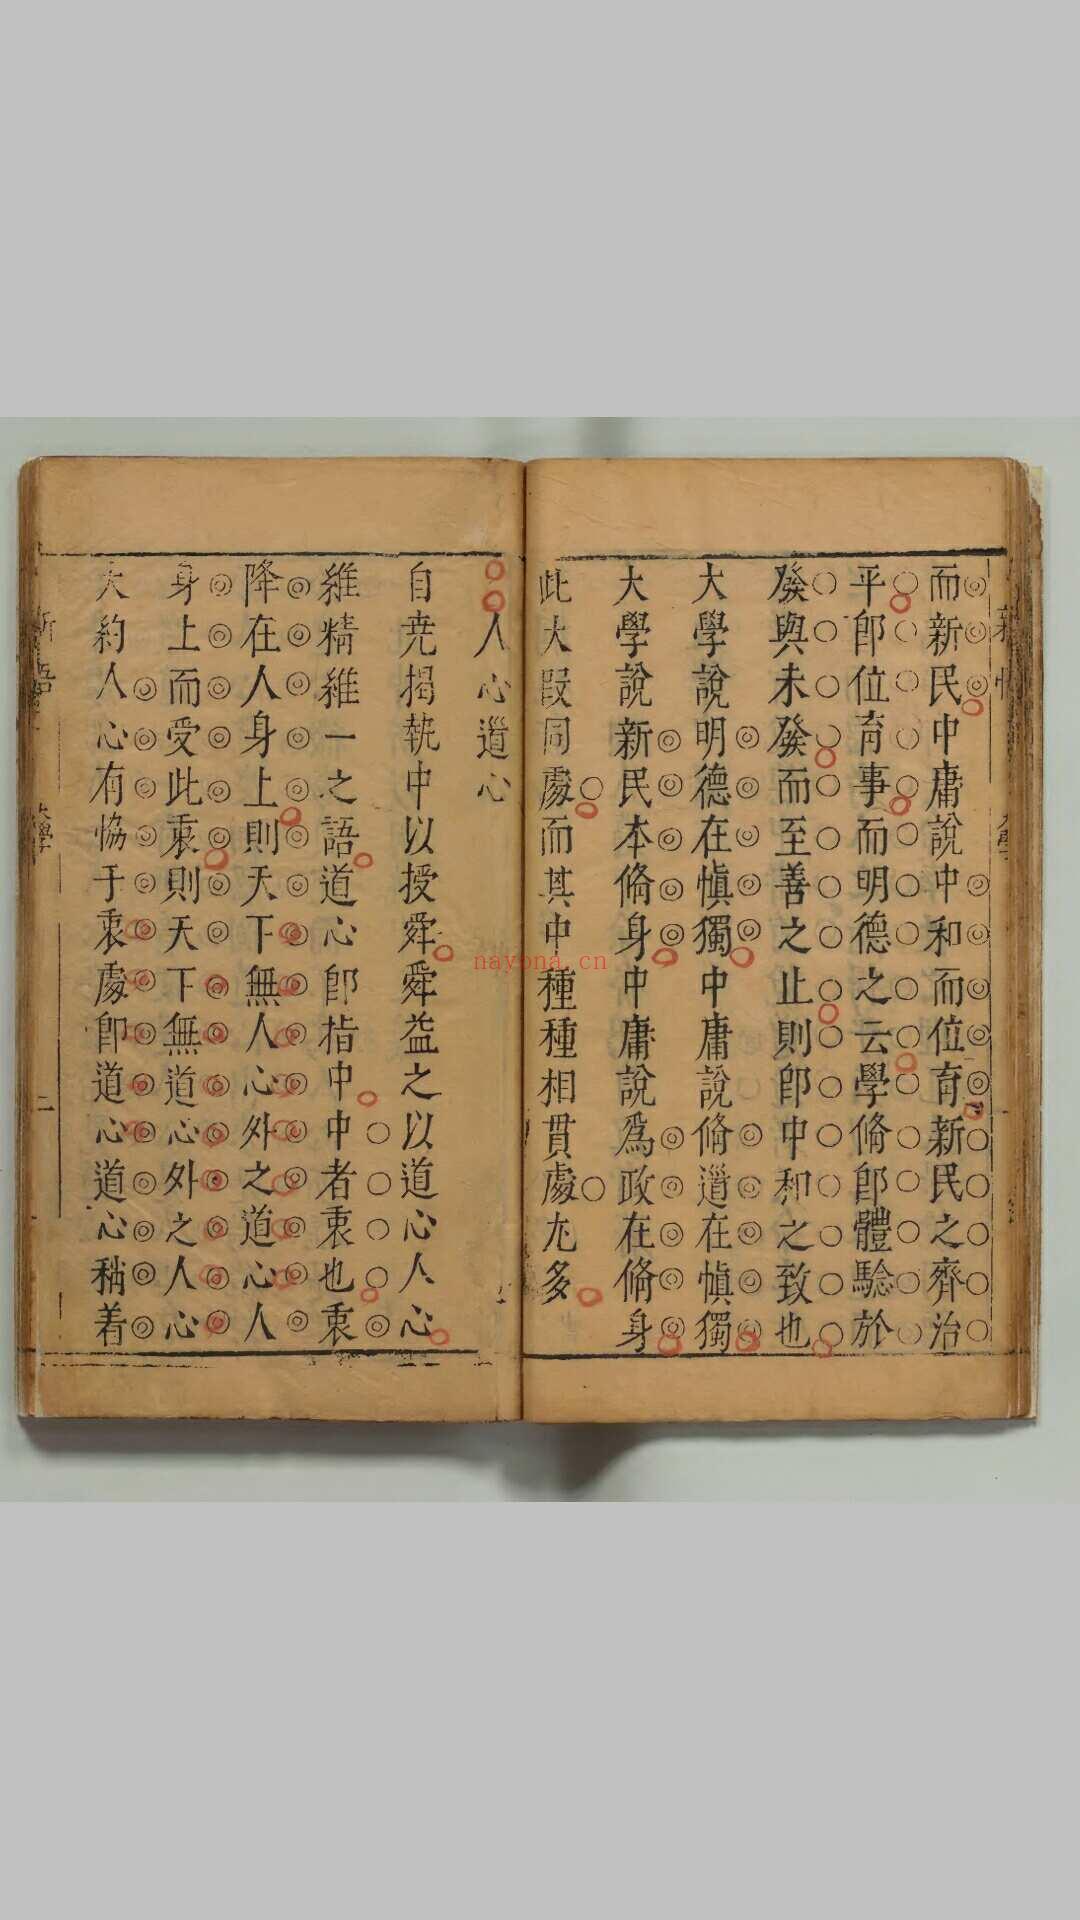 而新民中庸說中和而位育新民之齊治
平卽位育事而明德之云學脩卽體驗於
發與未發而至善之止則卽中和之致也
大學說明德在愼獨中庸說脩道在愼獨
大學說新民本脩身中庸說爲政在脩身
此大段同處而其中種種相貫處尤多
人心道心
自尭揭執中以授舜舜益之以道心人心
維精維一之語道心卽指中中者衷也衷
降在人身上則天下無人心外之道心人
身上而受此衷則天下無道心外之人心
大約人心有恊于衷處卽道心道心稍着
新語
大學
二
nayona.cn